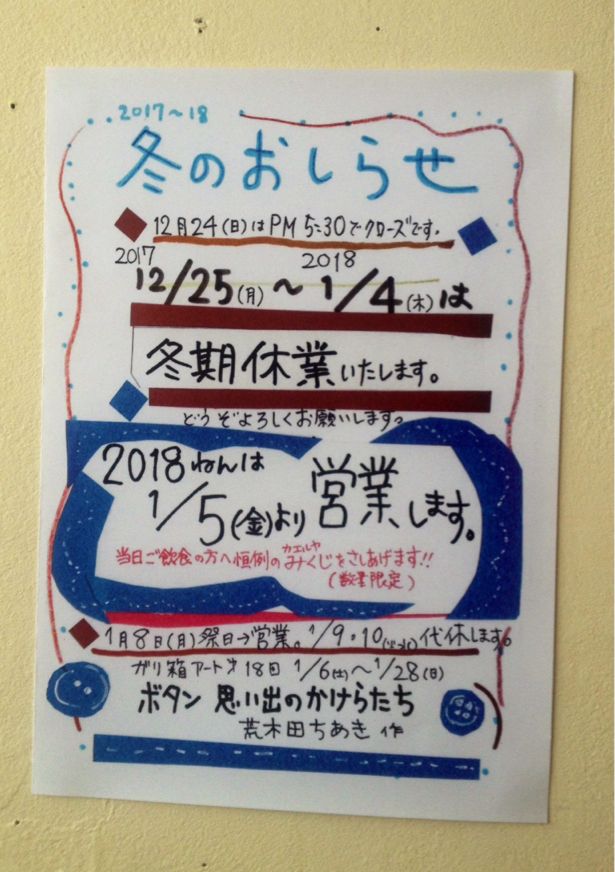 2017〜18
冬のおしらせ
12月24(日)はPM 5:30でクローズです.
2017 2018
12/25(月)〜1/4(木)は
冬期休業いたします。
どうぞよろしくお願いします。
2018ねんは
1/5(金)より営業します。
カエルヤ
当日ご飲食の方へ恒例のみくじをさしあげます!!
(数量限定)
1月8日(月)祭日→営業。1/9・10(火・水)代休します。
ガリ箱アート 18回 1/6(土)〜1/28(日)
ボタン 思い出のかけらたち
荒木田ちあき 作